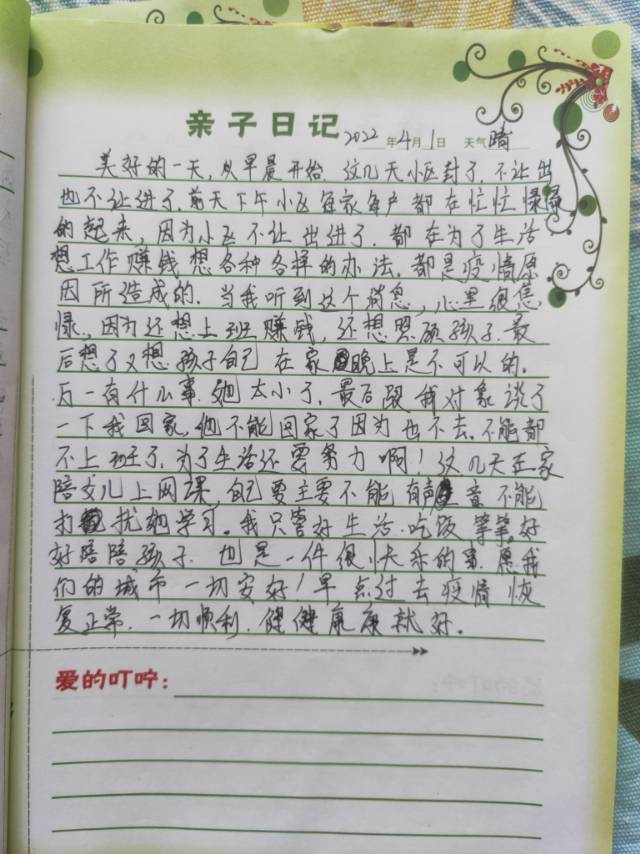 亲子日记 2022年4月1日 天气 晴
美好的一天,从早晨开始.这几天小区封了.不让出
也不让进了.前天下午小区每家每户都在忙忙慌慌
的起来,因为小区不让出进了.都在为了生活
想工作赚钱想各种各样的办法.都是疫情原
因所造成的.当我听到这个消息,心里很焦
虑.因为还想上班赚钱,还想照顾孩子.最
后想了又想孩子自己在家晚上是不可以的。
万一有什么事.她太小了,最后跟我对象谈了
一下我回家,他不能回家了因为也不去.不能都
不上班了,为了生活还要努力啊!这几天在家
陪女儿上网课,自己要主要不能有声音不能
打扰她学习。我只管好生活.吃饭等等.好
好陪陪孩子.也是一件很快乐的事.愿我
们的城市一切安好!早点过去疫情恢
复正常.一切顺利.健健康康就好。
爱的叮咛: